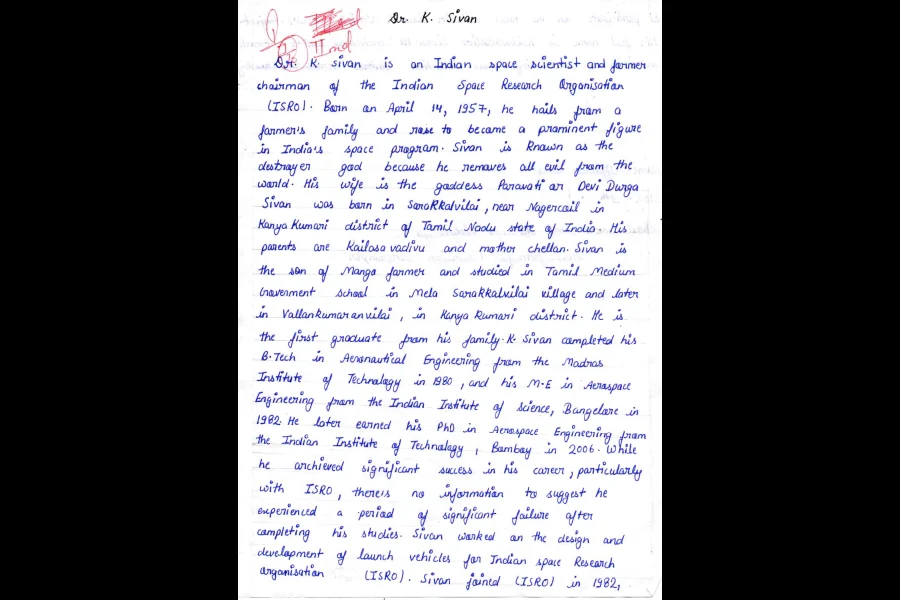 Dr. K. Sivan
IInd
Dr. K. Sivan is an Indian space scientist and farmer
chairman of the Indian Space Research Organisation
(ISRO). Born on April 14, 1957, he hails from a
farmer's family and rose to became a prominent figure
in India's space program. Sivan is Known as the
destroyer god because he removes all evil from the
world. His wife is the goddess Paravati or Devi Durga
Sivan was born in Sarakkalvilai, near Nagercoil in
Kanya Kumari district of Tamil Nadu state of India. His
parents are Kailasa vadivu and mother chellan. Sivan is
the son of Mango farmer and studied in Tamil Medium
Goverment school in Mela Sarakkalvilai village and later
in Vallankumaranvilai, in Kanya Kumari district. He is
the first graduate from his family. K. Sivan completed his
B.Tech in Aeronautical Engineering from the Madras
Institute of Technology in 1980, and his M.E in Aerospace
Engineering from the Indian Institute of Science, Bangelore in
1982. He later earned his PhD in Aerospace Engineering from
the Indian Institute of Technology, Bombay in 2006. While
he archieved significant success in his career, particularly
with ISRO, there is no information to suggest he
experienced a period of significant failure after
completing his studies. Sivan worked on the design and
development of launch vehicles for Indian space Research
organisation (ISRO). Sivan joined (ISRO) in 1982,